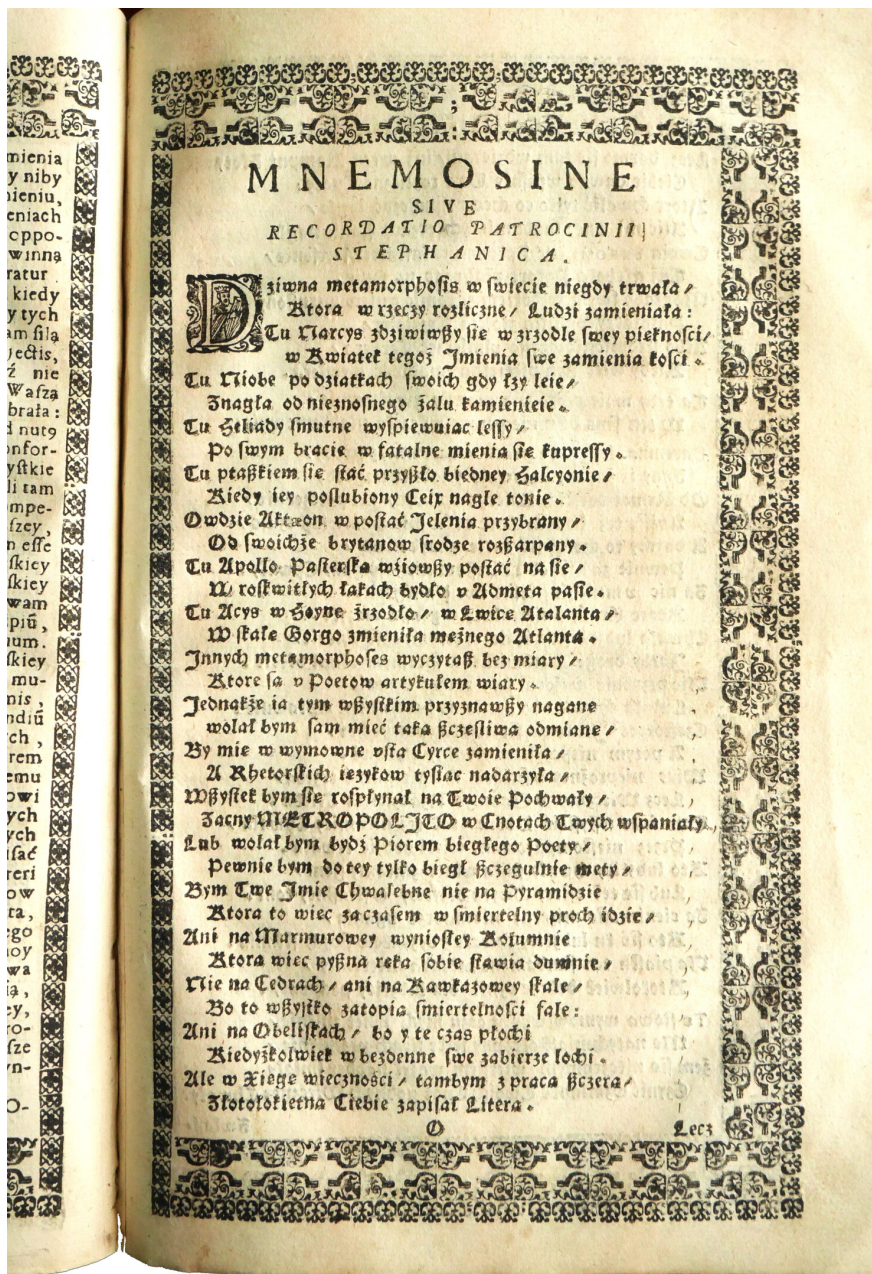 mienia
y niby
nieniu,
eniach
oppo-
winną
ratur
kiedy
y tych
am siłą
jectis,
ź nie
Waszą
brała:
d nutą
onfor-
ystkie
li tam
mpe-
ſzey,
n eſſe
ſkiey
ſkiey
wam
piū,
num.
ſkiey
mu-
nis,
ndiū
ch,
rem
emu
owi
ych
ych
iſać
reri
ow
ta,
ego
noy
wa
ią,
ey,
ro-
ſze
yn-
O-
MNEMOSINE
SIVE
RECORDATIO PATROCINII
STEPHANICA.
Dziwna metamorphoſis w ſwiecie niegdy trwała /
Ktora w rzeczy rozliczne / Ludzi zamieniała:
Tu Narcys zdziwiwßy ſię w zrzodle ſwey piękności /
w Kwiatek tegoż Imienia ſwe zamienia kości.
Tu Niobe po dziatkach ſwoich gdy łzy leie /
Znagła od nieznoſnego żalu kamienieie.
Tu Heliady ſmutne wyſpiewuiąc leſſy /
Po ſwym bracie w fatalne mienią ſię kupreſſy.
Tu ptaßkiem ſię ſtać przyßło biedney Halcyonie /
Kiedy iey poslubiony Ceix nagle tonie.
Owdzie Aktæon w poſtać Jelenia przybrany /
Od ſwoichże brytanow ſrodze rozßarpany.
Tu Apollo Paſterſką wźiowßy poſtać na ſię /
W roſkwitłych łąkach bydło v Admeta paſie.
Tu Acys w Hoyne źrzodło / w Lwicę Atalanta /
W ſkałę Gorgo zmieniła mężnego Atlanta.
Innych metamorphoſes wyczytaß bez miary /
Ktore ſą v Poetow artykułem wiary.
Jednakże ia tym wßyſtkim przyznawßy naganę
wolał bym ſam mieć taką ßczęśliwą odmianę /
By mię w wymowne vſta Cyrce zamieniła /
A Rhetorſkich ięzykow tyſiąc nadarzyła /
Wßyſtek bym ſię roſpłynął na Twoie Pochwały /
Zacny METROPOLITO w Cnotach Twych wſpaniały,
Lub wolał bym bydź Piorem biegłego Poety /
Pewnie bym do tey tylko biegł ßczegulnie mety /
Bym Twe Imie Chwalebne nie na Pyramidzie
Ktora to więc za czaſem w ſmiertelny proch idzie /
Ani na Marmurowey wynioſłey Kolumnie
Ktorą więc pyßna ręka ſobie ſtawia dumnie /
Nie na Cedrach / ani na Kawkazowey ſkale /
Bo to wßyſtko zatopią ſmiertelności fale:
Ani na Obeliſkach / bo y te czas płochi
Kiedyżkolwiek w bezdenne ſwe zabierze lochi.
Ale w Xięgę wieczności / tambym z pracą ßczerą /
Złotołokietną Ciebie zapiſał Literą.
Lecz